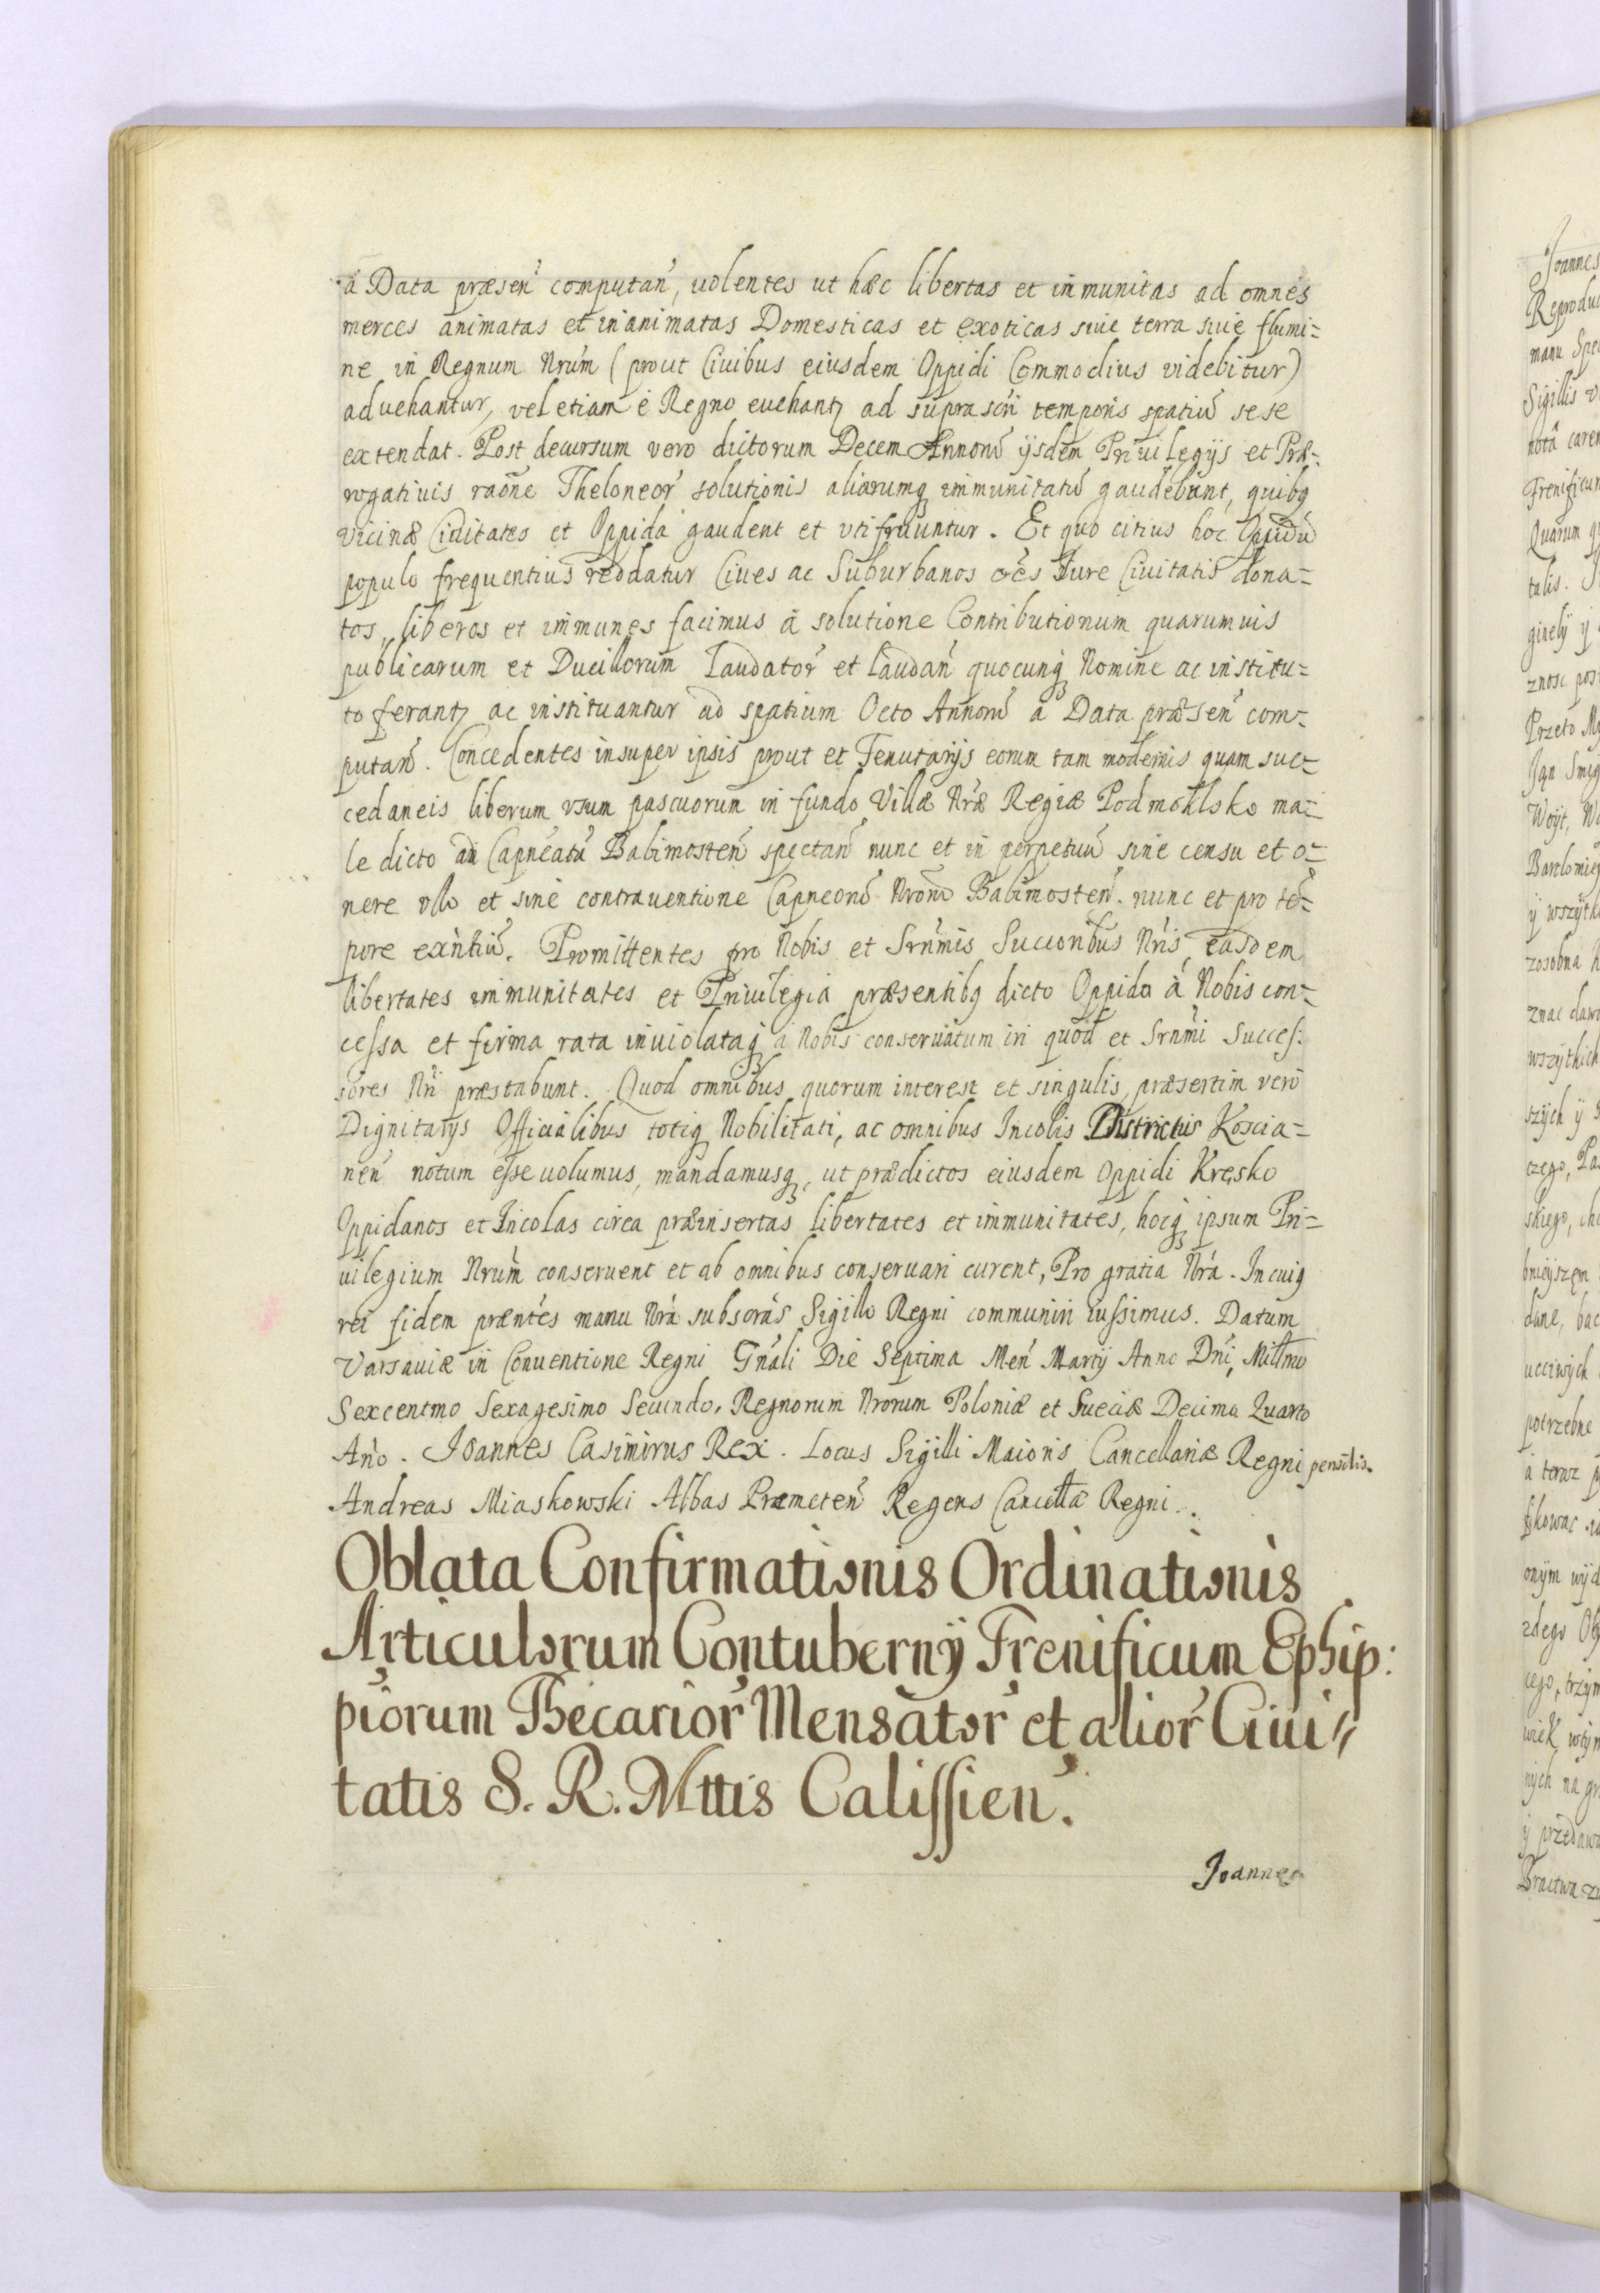 à Data præsen̄ computan̄, uolentes ut hæc libertas et inmunitas ad omnes
merces animatas et inanimatas Domesticas et exoticas siuie terra siuie flumi=
ne in Regnum Nrūm (prout Ciuibus eiusdem Oppidi Commodius videbitur)
aduehantur, vel etiam è Regno euehantꝫ ad suprascri temporis spatiū sese
extendat. Post decursum vero dictorum Decem Annonū ijsdem Priuilegijs et Præ=
rogatiuis raōne Theloneor̄ solutionis aliarumq immunitatū gaudebunt, quibq
vicinæ Ciuitates et Oppida gaudent et vtifruuntur. Et quo citius hoc Oppidū
populo frequentius reddatur Ciues ac Suburbanos oēs Iure Ciuitatis dona=
tos, liberos et immunes facimus à solutione Contributionum quarumuis
publicarum et Ducillorum Laudator̄ et laudan̄ quocunq Nomine ac institu=
to ferantꝫ ac instituantur ad spatium Octo Annonū a Data præsen̄ com=
putan̄. Concedentes insuper ipsis prout et Tenutarijs eorum tam modernis quam suc=
cedaneis liberum vsum pascuorum in fundo Villæ Nræ Regiæ Podmoklsko ma=
le dicto ad Capneatū Babimosten̄ spectan̄ nunc et in perpetuū sine censu et o=
nere vllo et sine contrauentione Capneonū Nronū Babimosten̄. nunc et pro tē=
pore exn̄tiū. Promittentes pro Nobis et Srn̄mis Succionibus Nris, easdem
libertates immunitates et Priuilegia præsentibq dicto Oppido à Nobis con=
cessa et firma rata inuiolataq à Nobis conseruatum iri quod et Srn̄mi Succes:
sores Nri præstabunt. Quod omnibus quorum interest et singulis, præsertim vero
Dignitarijs Officialibus totiq Nobilitati, ac omnibus Incolis Districtus Koscia=
nen̄ notum esse uolumus, mandamusq, ut prædictos eiusdem Oppidi Kręsko
Oppidanos et Incolas circa præinsertas libertates et immunitates, hocq ipsum Pri=
uilegium Nrūm conseruent et ab omnibus conseruari curent, Pro gratia Nrā. In cuiq
rei fidem præntes manu Nrā subscras Sigillo Regni communiri iussimus. Datum
Varsauiæ in Conuentione Regni Gn̄ali Die Septima Men̄ Martij Anno Dn̄i, Millmo
Sexcentmo Sexagesimo Secundo, Regnorum Nrorum Poloniæ et Sueciæ Decimo Quarto
An̄o. Ioannes Casimirus Rex. Locus Sigilli Maioris Cancellariæ Regni pensilis.
Andreas Miaskowski Abbas Præmeten̄ Regens Cancellā Regni.
Oblata Confirmationis Ordinationis
Articulorum Contubernij Frenificum Ephip:
piorum Thecarior̄ Mensator̄ et alior̄ Ciui=
tatis S. R. Mttis Calissien̄.
Joannes